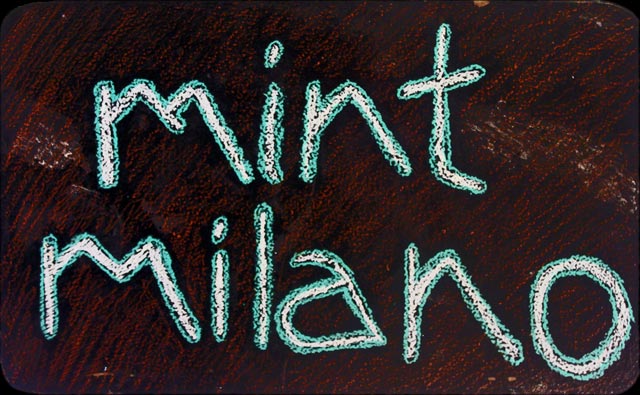 mint
milano